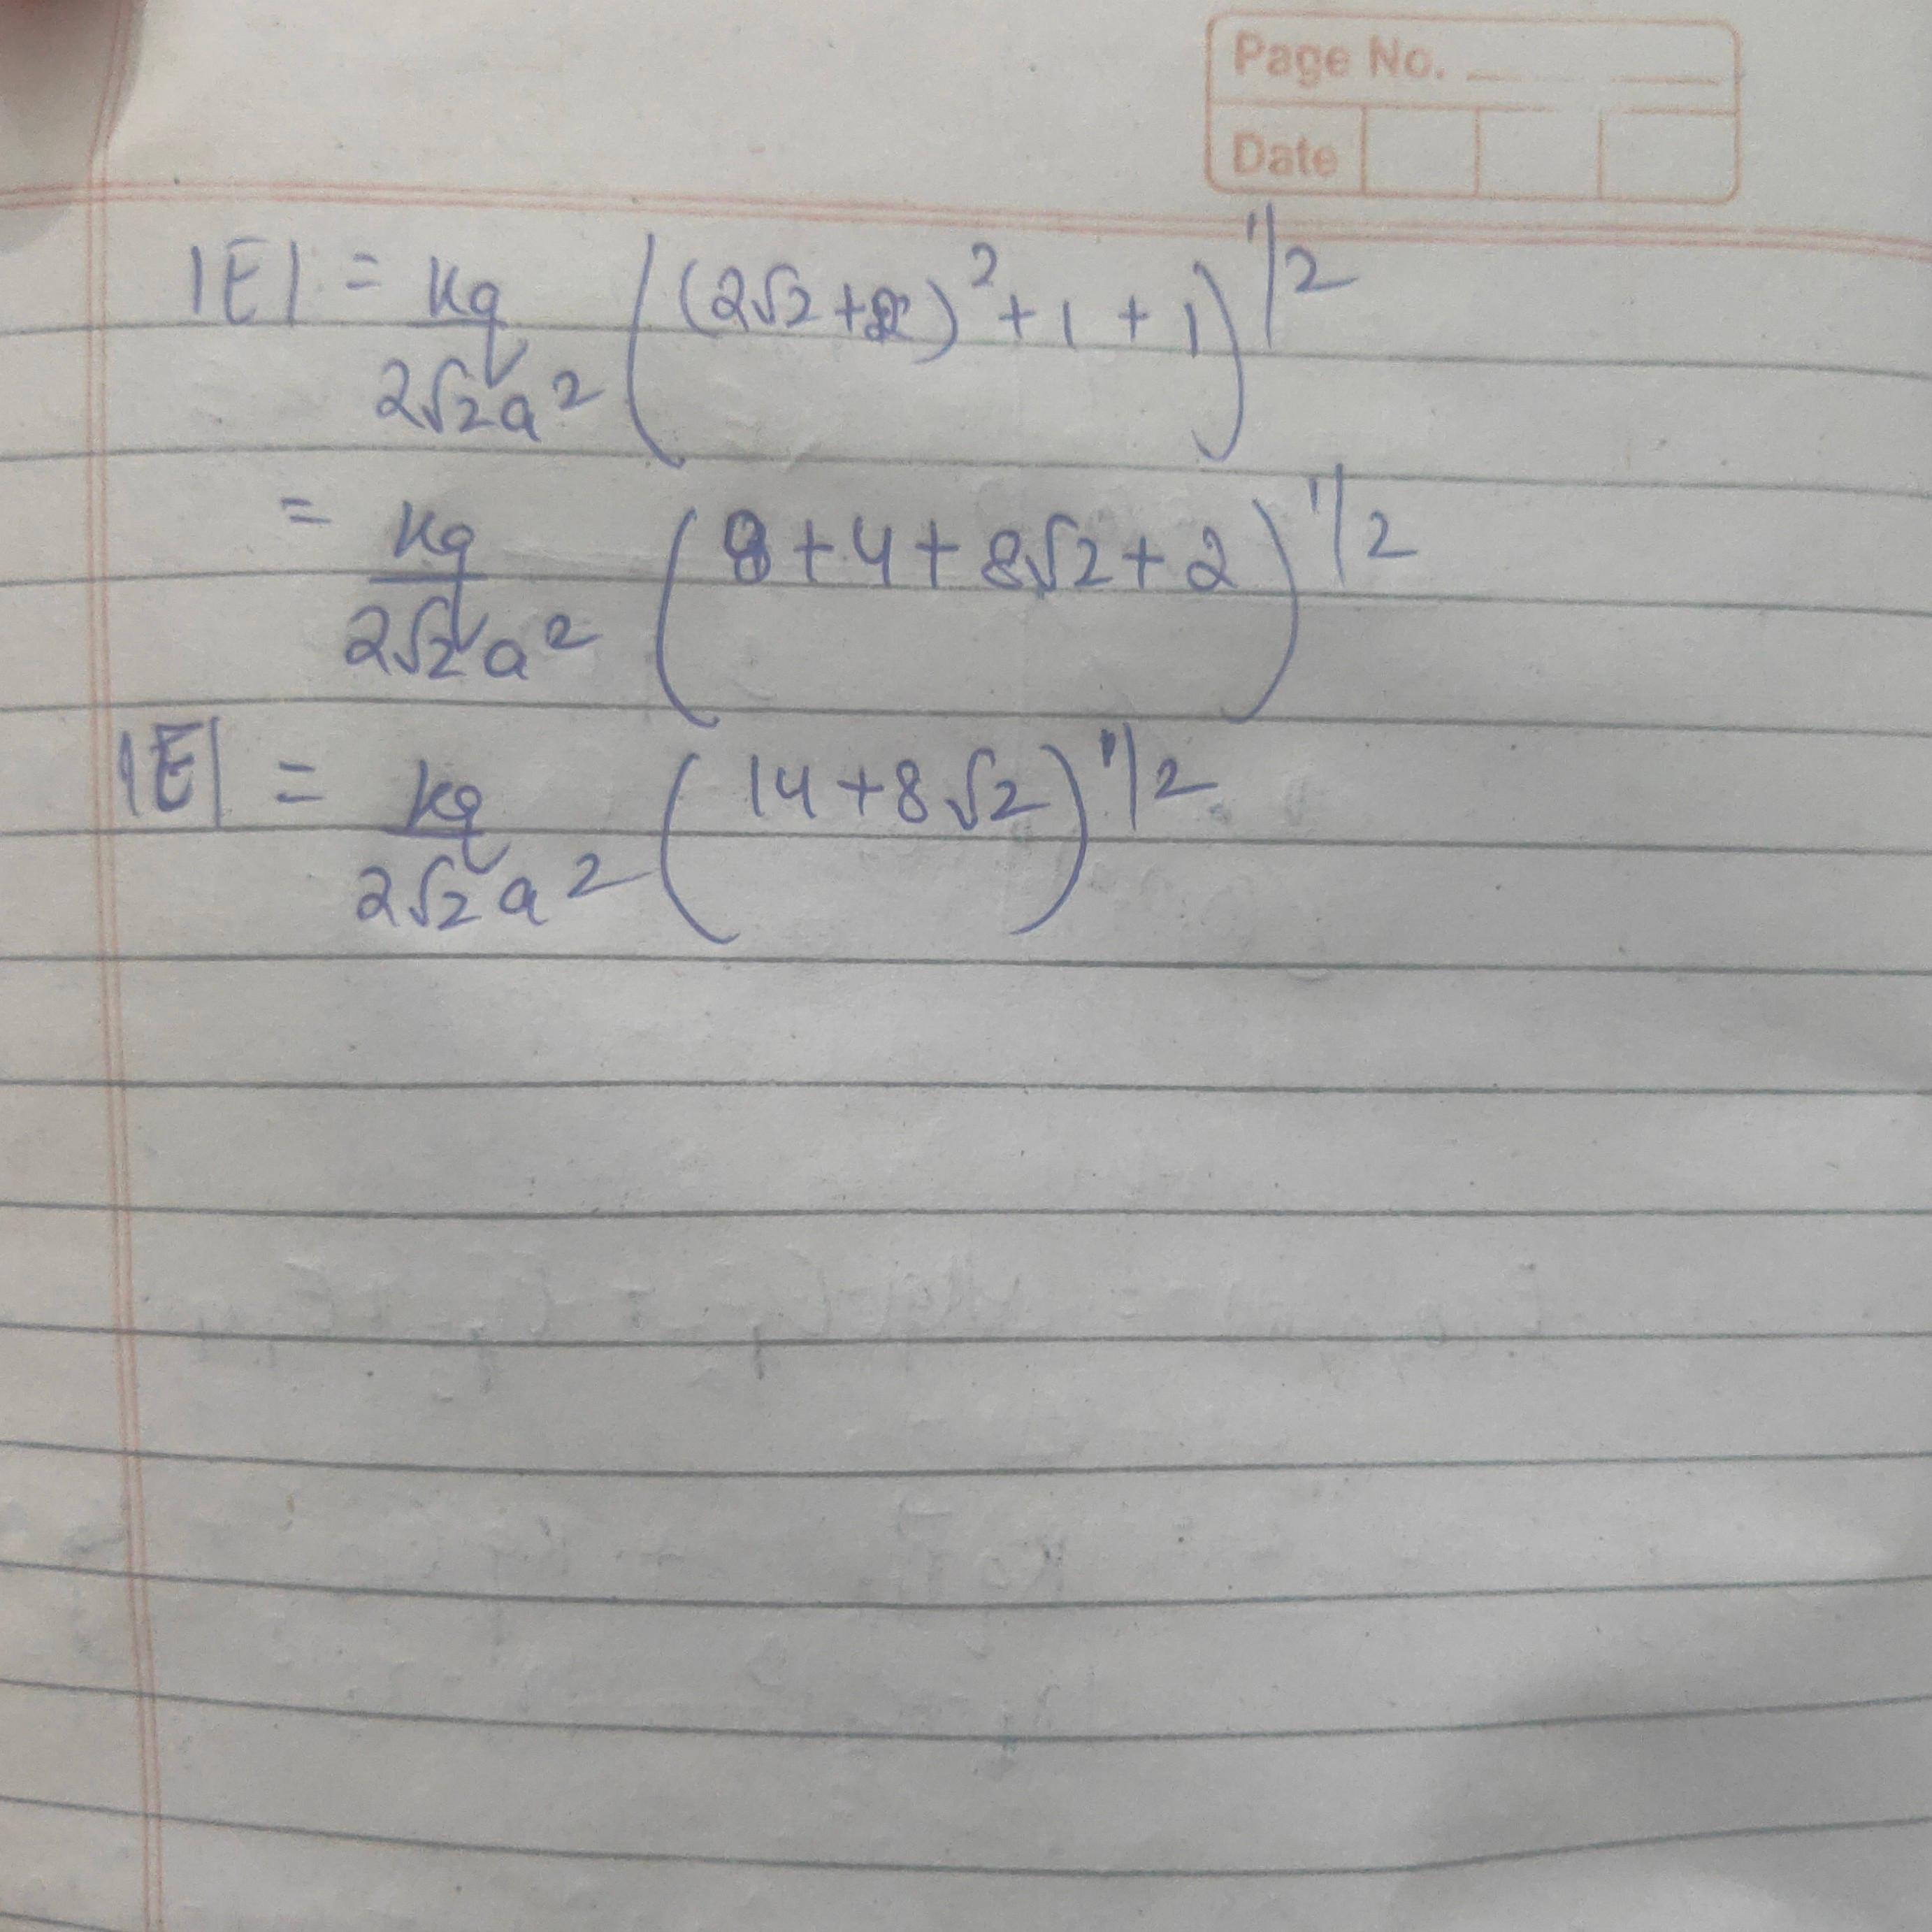 Page No.
Date
|E| = Kq/2√2a² ((2√2+2)² + 1 + 1)^1/2
= Kq/2√2a² (8+4+8√2+2)^1/2
|E| = Kq/2√2a² (14+8√2)^1/2